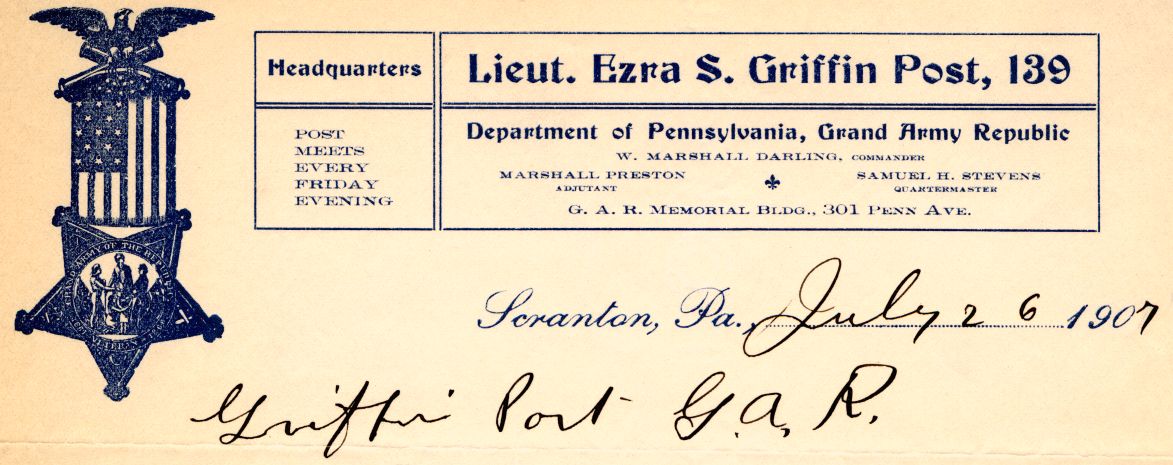 Headquarters
POST
MEETS
EVERY
FRIDAY
EVENING
Lieut. Ezra S. Griffin Post, 139
Department of Pennsylvania, Grand Army Republic
W. MARSHALL DARLING, COMMANDER
MARSHALL PRESTON
ADJUTANT
SAMUEL H. STEVENS
QUARTERMASTER
G. A. R. MEMORIAL BLDG., 301 PENN AVE.
GRAND ARMY OF THE REPUBLIC
VETERAN
Scranton, Pa., July 26 1907
Griffin Post G.A.R.